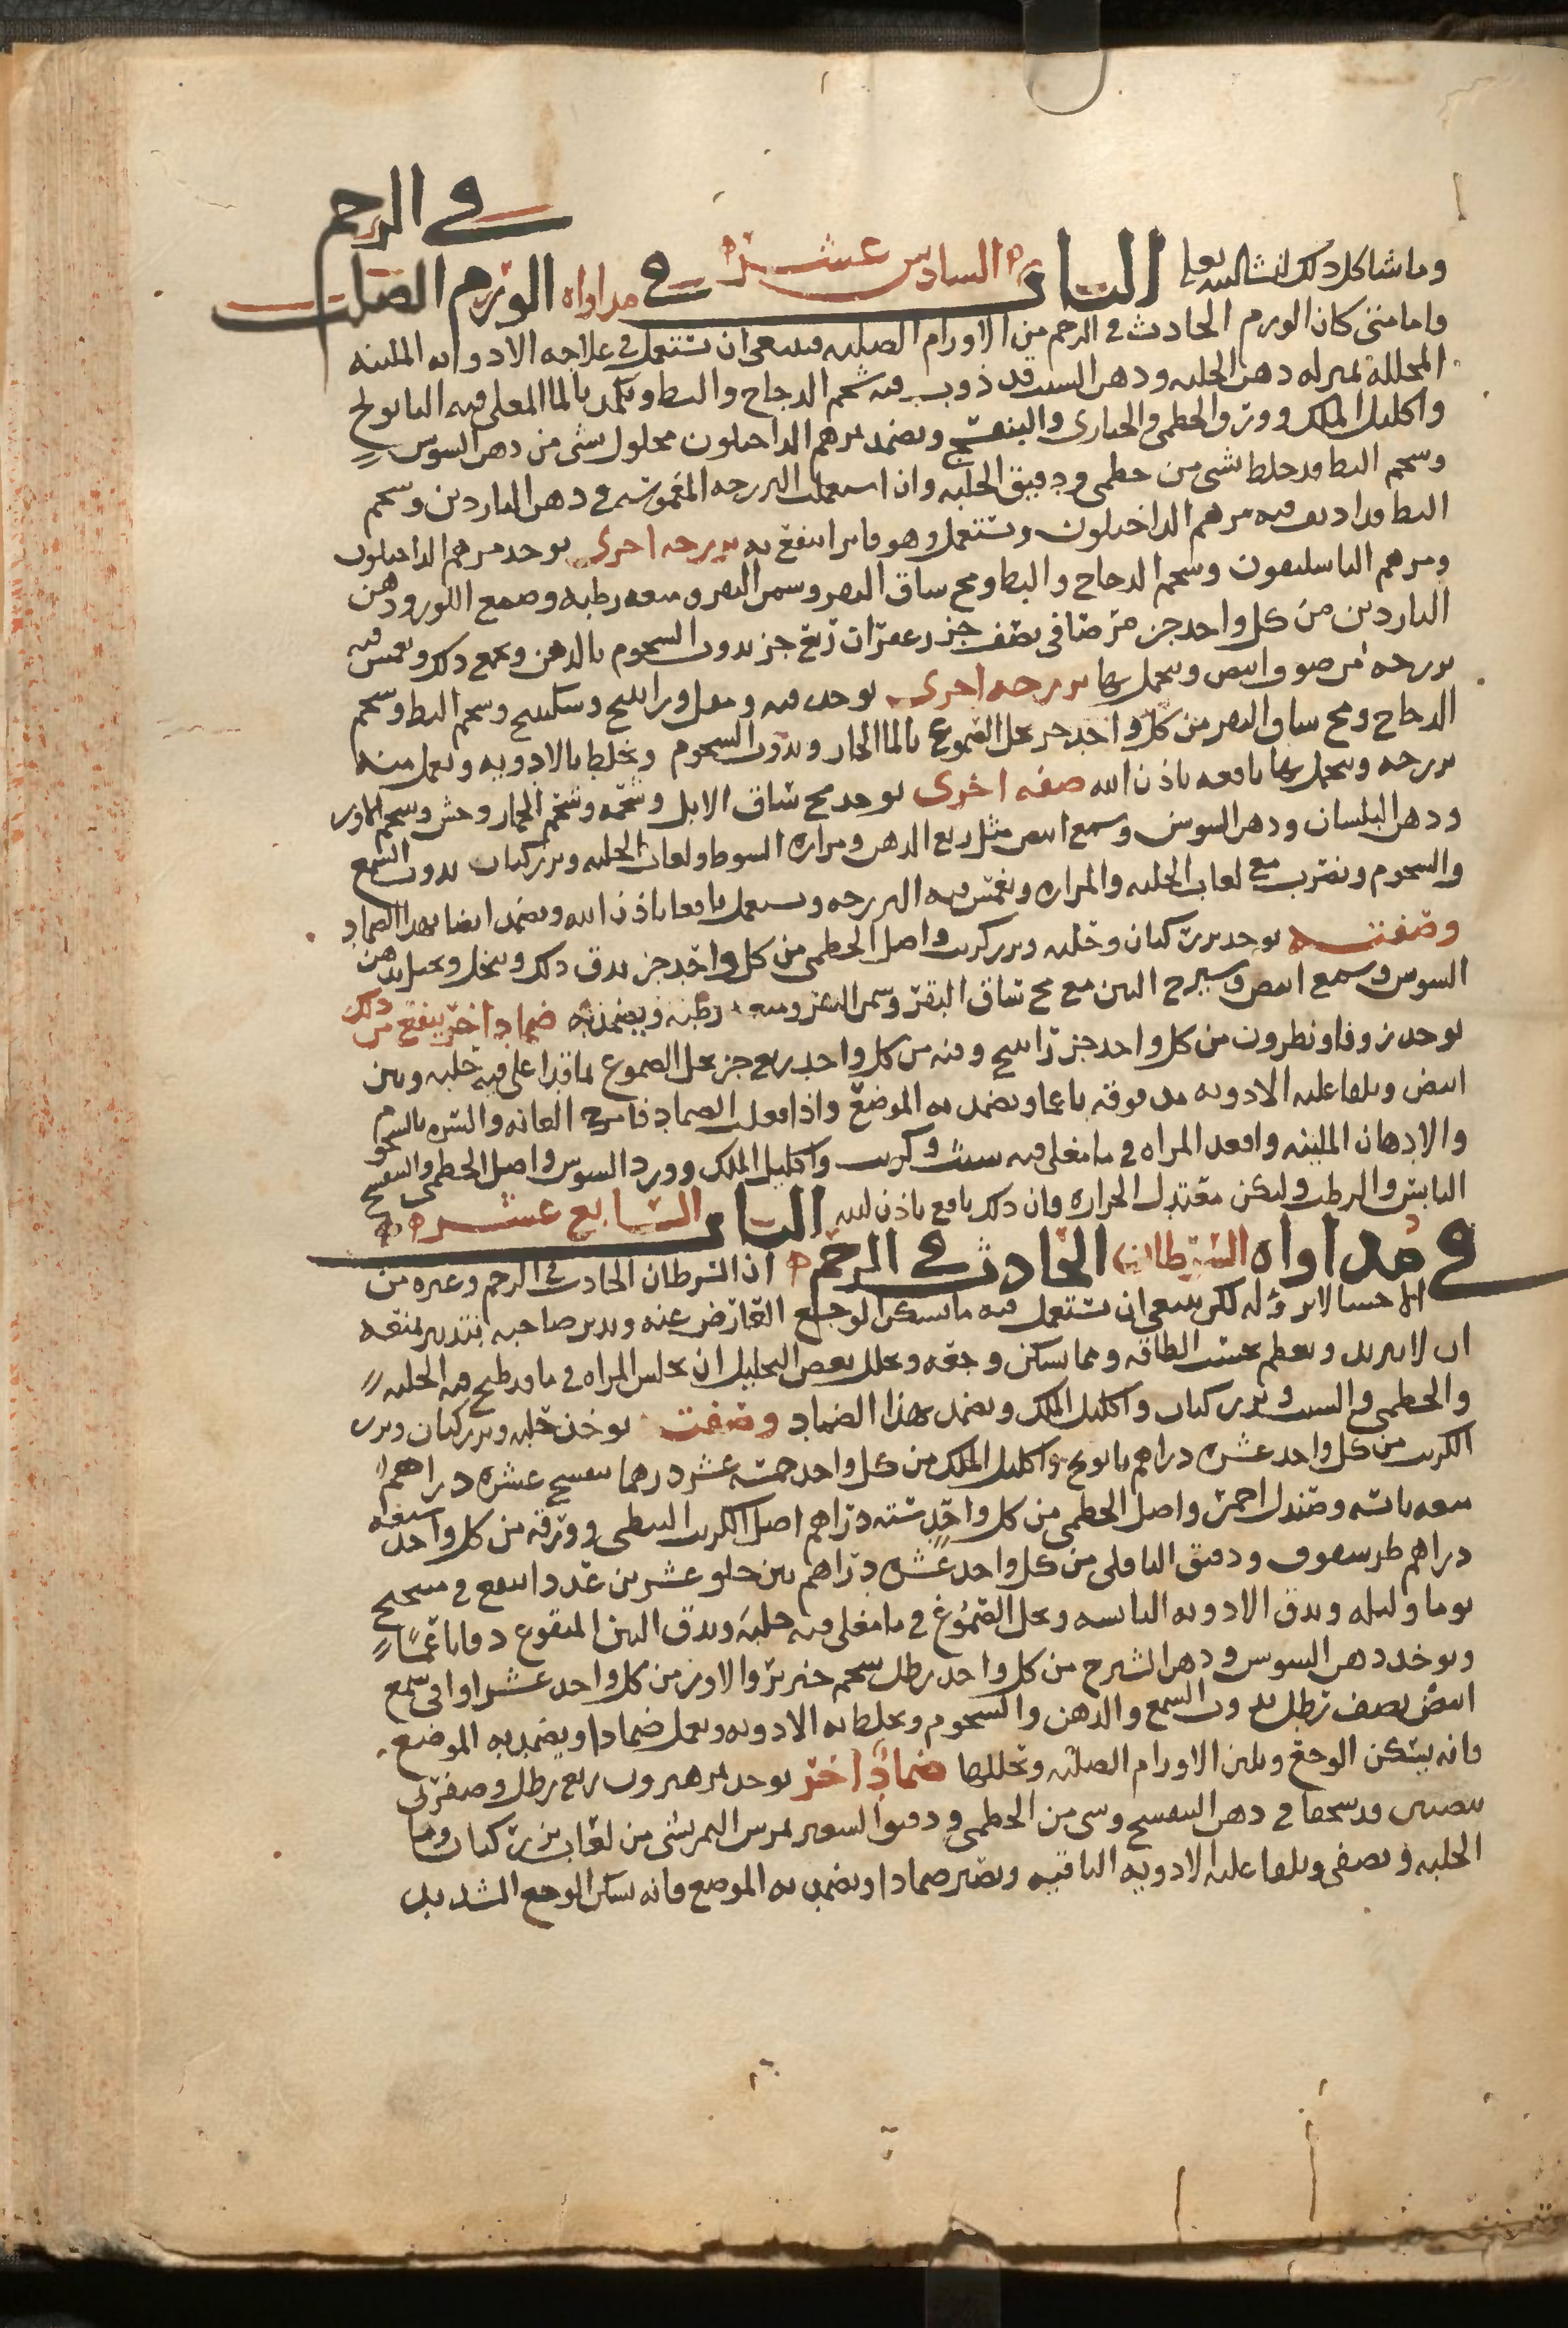 في الرحم
وما شاكل ذلك انشا الله تعالى الباب السادس عشر في مداواه الورم الصلب
واما متى كان الورم الحادث في الرحم من الاورام الصلبه فينبغى ان تستعمل في علاجه الادويه الملينه
المحللة بمنزله دهن الحلبه ودهن الشبت قد ذوب فيه شحم الدجاج والبط وتكمد بالما المغلى فيه البابونج
واكليل الملك وورق الخطمى والخبازى والبنفسج ويضمد بمرهم الداخيلون محلول بشى من دهن السوسن
وشحم البط قد خلط بشى من خطمى ودقيق الحلبه وان استعملت الفرزجه المغموسه في دهن الناردين وشحم
البط قد اديف فيه مرهم الداخيلون وتستعمل وهو فاتر انتفع به فرزجه اخرى يوخذ مرهم الداخيلون
ومرهم الباسليقون وشحم الدجاج والبط ومخ ساق البقر وسمن البقر وميعه رطبه وصمغ اللوز ودهن
الناردين من كل واحد جز مر صافى نصف جز زعفران ربع جز يدوب الشحوم بالدهن ويجمع ذلك ويغمس فيه
فرزجه من صوف ابيض ويتحمل بها فرزجه اخرى يوخذ قنه ومقل وراتينج وسكبينج وشحم البط وشحم
الدجاج ومخ ساق البقر من كل واحد جز يحل الصموغ بالما الحار ويذوب الشحوم ويخلط بالادويه ويعمل منه
فرزجه ويتحمل بها نافعه باذن الله صفه اخرى يوخذ مخ ساق الابل وشحمه وشحم الحمار وحش وشحم الاوز
ودهن البلسان ودهن السوسن وشمع ابيض مثل ربع الدهن ومراره الشبوط ولعاب الحلبه وبزر كتان يدوب الشمع
والشحوم ويضرب مع لعاب الحلبه والمراره ويغمس فيه الفرزجه ويستعمل نافعا باذن الله ويضمد ايضا بهذا الضماد
وصفته يوخذ بزر كتان وحلبه وبزر كرنب واصل الخطمى من كل واحد جز يدق ذلك وينخل ويحل بدهن
السوسن وشمع ابيض وشيرج التين مع مخ ساق البقر وسمن البقر وميعه رطبه ويضمد به ضماد اخر ينفع من ذلك
يوخذ زوفا ونطرون من كل واحد جز راتينج وقنه من كل واحد ربع جز يحل الصموغ بما قد اغلى فيه حلبه وتين
ابيض ويلقا عليه الادويه مدقوقه ناعما ويضمد به الموضع واذا فعلت الضماد فامرخ العانه والسره بالشحوم
والادهان الملينه واقعد المراه في ما مغلى فيه شبت وكرنب واكليل الملك وورد السوسن واصل الخطمى والبنفسج
اليابس والرطب وليكن معتدل الحراره فان ذلك نافع باذن الله الباب السابع عشر
في مداواه السرطان الحادث في الرحم ان السرطان الحادث في الرحم وغيره من
الاحشا لا برؤ له لكن ينبغى ان تستعمل فيه ما يسكن الوجع العارض عنه ويدبر صاحبه بتدبير يمنعه
ان لا يزيد ويعظم بحسب الطاقه ومما يسكن وجعه ويحلل بعض التحليل ان تجلس المراه في ما قد طبخ فيه الحلبه
والخطمى والشبت وبزر كتان واكليل الملك ويضمد بهذا الضماد وصفته يوخذ حلبه وبزر كتان وبزر
الكرنب من كل واحد عشره دراهم بابونج واكليل الملك من كل واحد خمسه عشر درهما بنفسج عشره دراهم
ميعه يابسه وصندل احمر واصل الخطمى من كل واحد سته دراهم اصل الكرنب النبطى وورقه من كل واحد سبعه
دراهم ودقيق الباقلى من كل واحد عشره دراهم تين حلو عشرين عدد انقع في
يوما وليله ويدق الادويه اليابسه ويحل الصموغ في ما مغلى فيه حلبه ويدق التين المنقوع دقا ناعما
ويوخذ دهن السوسن ودهن الشيرج من كل واحد رطل شحم خنزير والاوز من كل واحد عشر اواقى شمع
ابيض نصف رطل يدوب الشمع والدهن والشحوم ويخلط به الادويه ويعمل ضمادا ويضمد به الموضع
فانه يسكن الوجع ويلين الاورام الصلبه ويحللها ضماد اخر يوخذ تمر هيرون ربع رطل وصفرتى
بيضتين قد سحقا في دهن البنفسج وشى من الخطمى ودقيق الشعير يمرس التمر بشى من لعاب بزر كتان وما
الحلبه ويصفى ويلقا عليه الادويه الباقيه ويصير ضمادا ويضمد به الموضع فانه يسكن الوجع الشديد